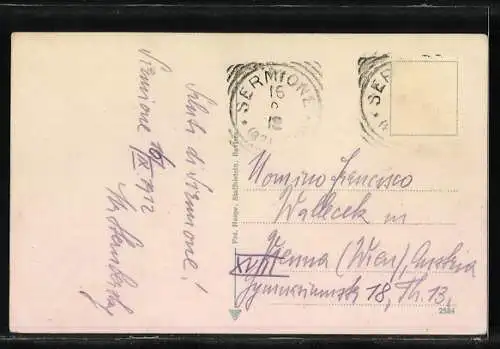 Saluti di Sirmione!
Sirmione 16/IX 1912
SERMIONE
16
9
12
SER
Nomino Francisco
Wallecek in
Vienna (Wien), Austria
XVIII
Gymnasiumstr 18, Th. 13.
2584